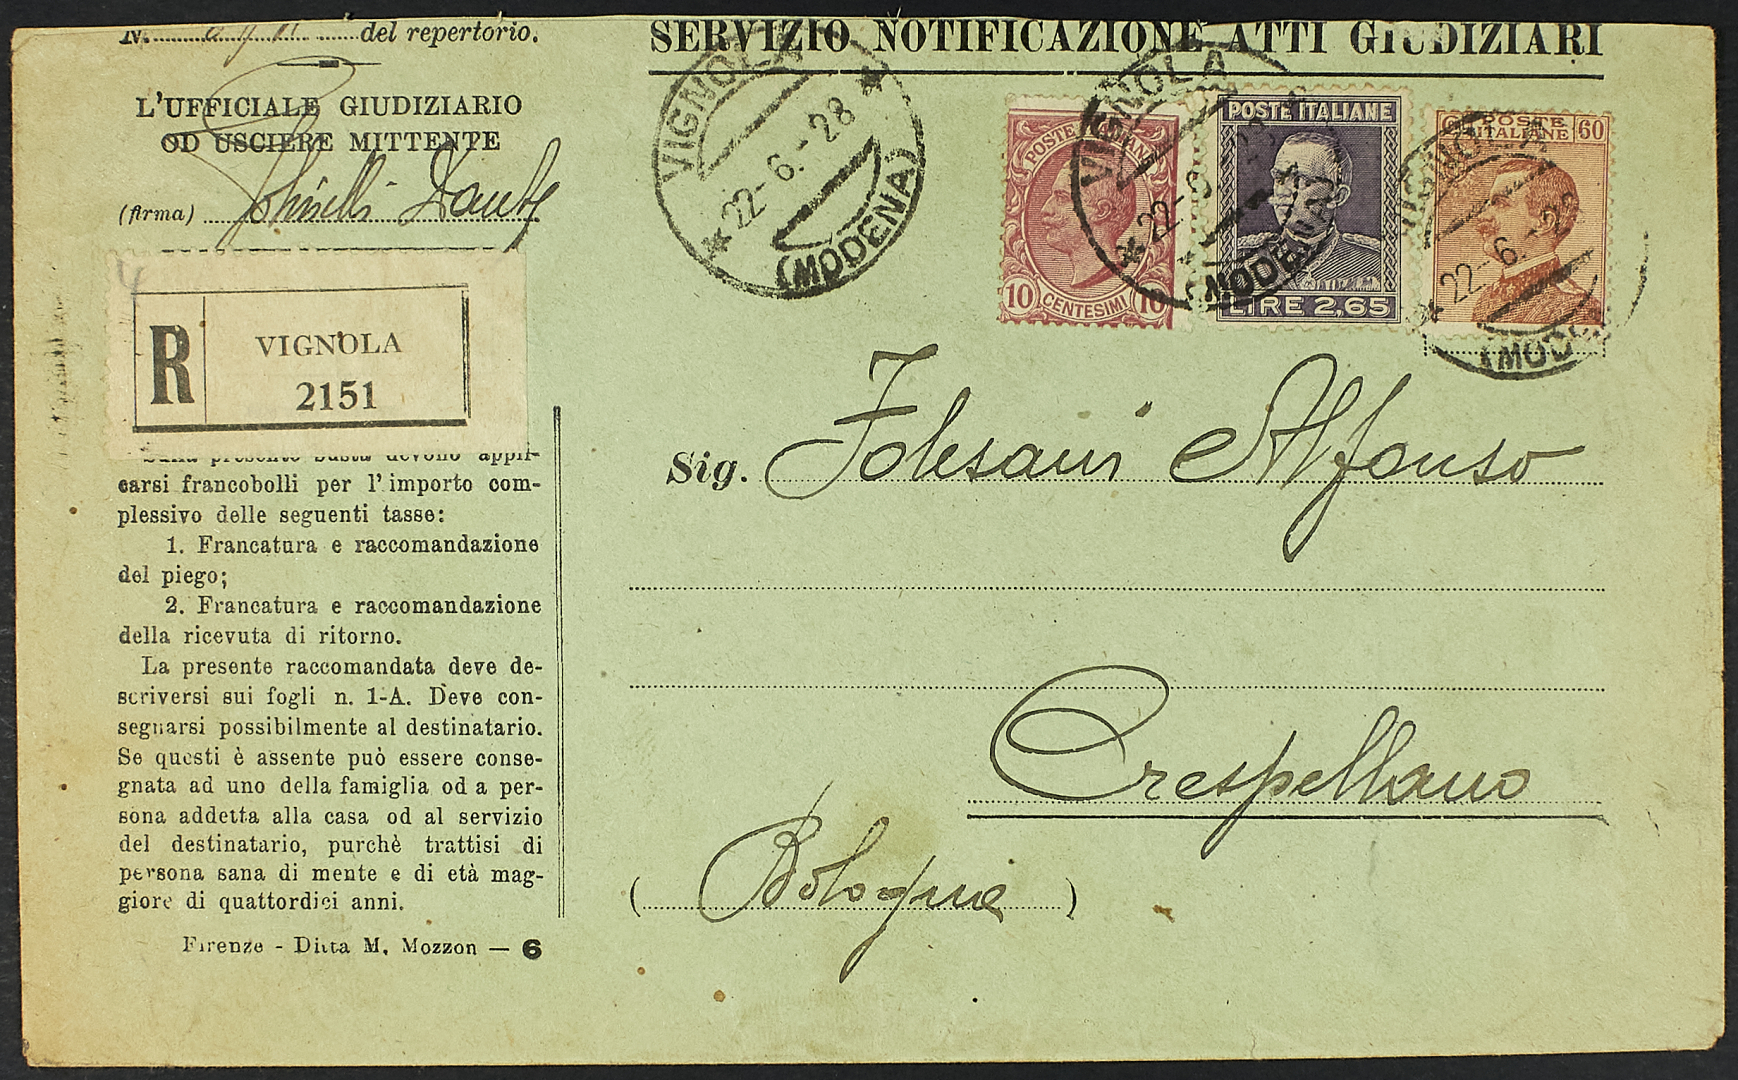 N. del repertorio.
SERVIZIO NOTIFICAZIONE ATTI GIUDIZIARI
L'UFFICIALE GIUDIZIARIO
OD USCIERE MITTENTE
(firma) Dante
R
VIGNOLA
2151
VIGNOLA
22-6.-28
(MODENA)
POSTE ITALIANE
10 CENTESIMI 10
VIGNOLA
22-6
(MODENA)
POSTE ITALIANE
LIRE 2,65
60 POSTE 60
ITALIANE
VIGNOLA
22-6.-28
(MODENA)
Sulla presente busta devono appli-
carsi francobolli per l'importo com-
plessivo delle seguenti tasse:
1. Francatura e raccomandazione
del piego;
2. Francatura e raccomandazione
della ricevuta di ritorno.
La presente raccomandata deve de-
scriversi sui fogli n. 1-A. Deve con-
segnarsi possibilmente al destinatario.
Se questi è assente può essere conse-
gnata ad uno della famiglia od a per-
sona addetta alla casa od al servizio
del destinatario, purchè trattisi di
persona sana di mente e di età mag-
giore di quattordici anni.
Firenze - Ditta M. Mozzon — 6
Sig. Folesani Alfonso
Crespellano
(Bologna)